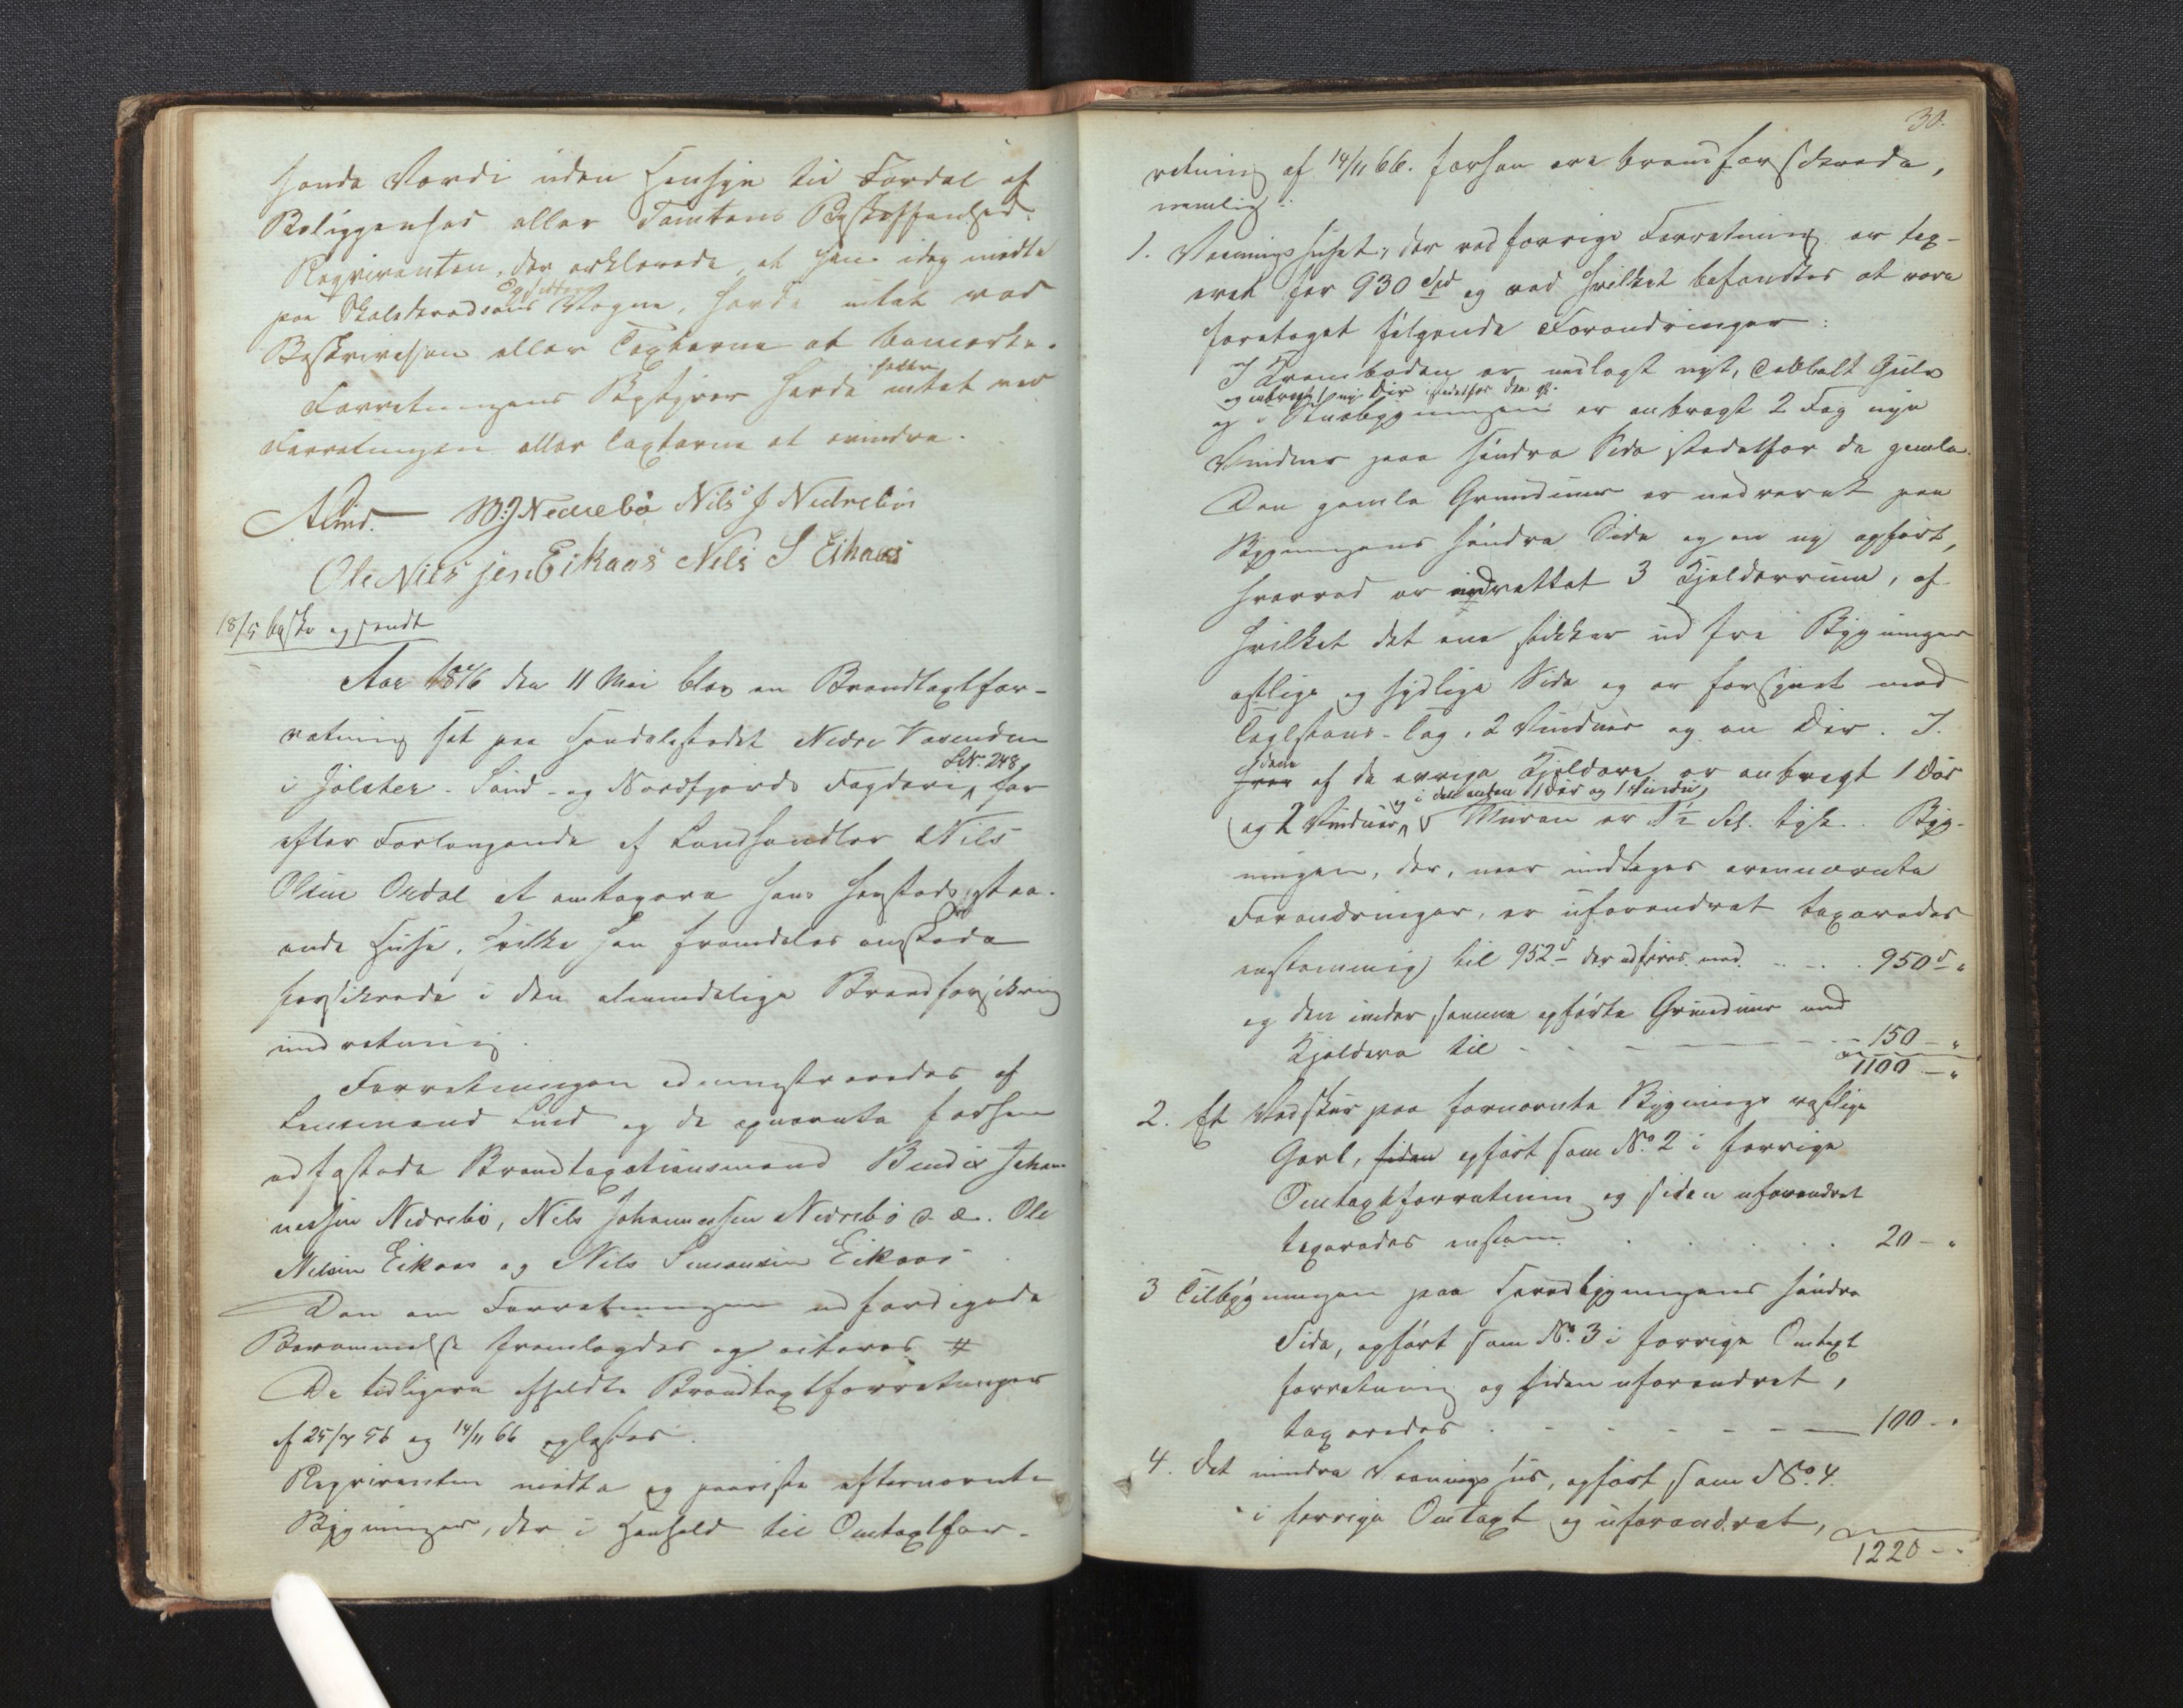 hande Værdi uden Hensyn til Fordel af
Beliggenhed eller Tomtens Beskaffenhed.
Reqvirenten, der erklærede, at han idag mødte
paa Skoleskredsens Vegne, havde intet ved
Opsitter
Beskrivelsen eller Taxterne at bemærke.
Forretningens Bestyrer havde intet ved
heller
Forretningen eller Taxterne at erindre.
Alind. B. J Nedrebø Nils J Nedrebø
Ole Nilssen Eikaas Nils S Eikaas
18/5 besk. og sendt
Aar 1876 den 11 Mai blev en Brandtaxtfor-
retning sat paa Handelsstedet Nedre Vasenden
i Jølster - Sønd- og Nordfjords Fogderi for
LNr. 248
efter Forlangende af Landhandler Nils
Olsen Ordal at omtaxere hans herstedsstaa-
ende Huse, hvilke han fremdeles ønskede
forsikrede i den almindelige Brandforsikring
indretning.
Forretningen administreredes af
Lensmand Lind og de opnævnte forhen
edfæstede Brandtaxationsmænd Bendix Johan-
nessen Nedrebø, Nils Johannessen Nedrebø d. æ. Ole
Nilsen Eikaas og Nils Simonsen Eikaas
Den om Forretningen udfærdigede
Berammelse fremlagdes og citeres #
De tidligere afholdte Brandtaxtforretninger
af 25/7 56 og 14/11 66 oplæstes.
Reqvirenten mødte og paaviste efternævnte
Bygninger, der i Henhold til Omtaxtfor-
30.
retning af 14/11 66. forhen ere brandforsikrede,
nemlig:
1. Vaaningshuset, der ved forrige Forretning er tax-
eret for 930 Spd og ved hvilket befandtes at være
foretaget følgende Forandringer:
I Kramboden er nedlagt nyt, dobbelt Gulv
og anbragt ny Dør istedetfor den gl.
og i Stuebygningen er anbragt 2 Fag nye
Vinduer paa søndre Side stedetfor de gamle.
Den gamle Grundmur er nedrevet paa
Bygningens søndre Side og en ny opført,
hvorved er indrettet 3 Kjelderrum, af
hvilket det ene stikker ud fra Bygningens
østlige og sydlige Side og er forsynet med
Taglstens-Tag, 2 Vinduer og en Dør. I
hver af de øvrige Kjeldere er anbragt 1 Dør
den ene
og i den anden 1 Dør og 1 Vindu,
og 2 Vinduer, Muren er 1 1/2 Al. tyk. Byg-
ningen, der, naar undtages ovennævnte
Forandringer, er uforandret taxeredes
enstemmig til 952 d der udføres med 950 d "
og den under samme opførte Grundmur med
Kjeldere til 150 - "
1100 - "
2. Et Vedskur paa fornævnte Bygnings vestlige
Gavl, siden opført som No. 2 i forrige
Omtaxtforretning og siden uforandret
taxeredes enstem. 20 - "
3 Tilbygningen paa Hovedbygningens søndre
Side, opført som No. 3 i forrige Omtaxt
forretning og siden uforandret,
taxeredes 100 - "
4. Det mindre Vaaningshus, opført som No. 4.
i forrige Omtaxt og uforandret,
1220 - "